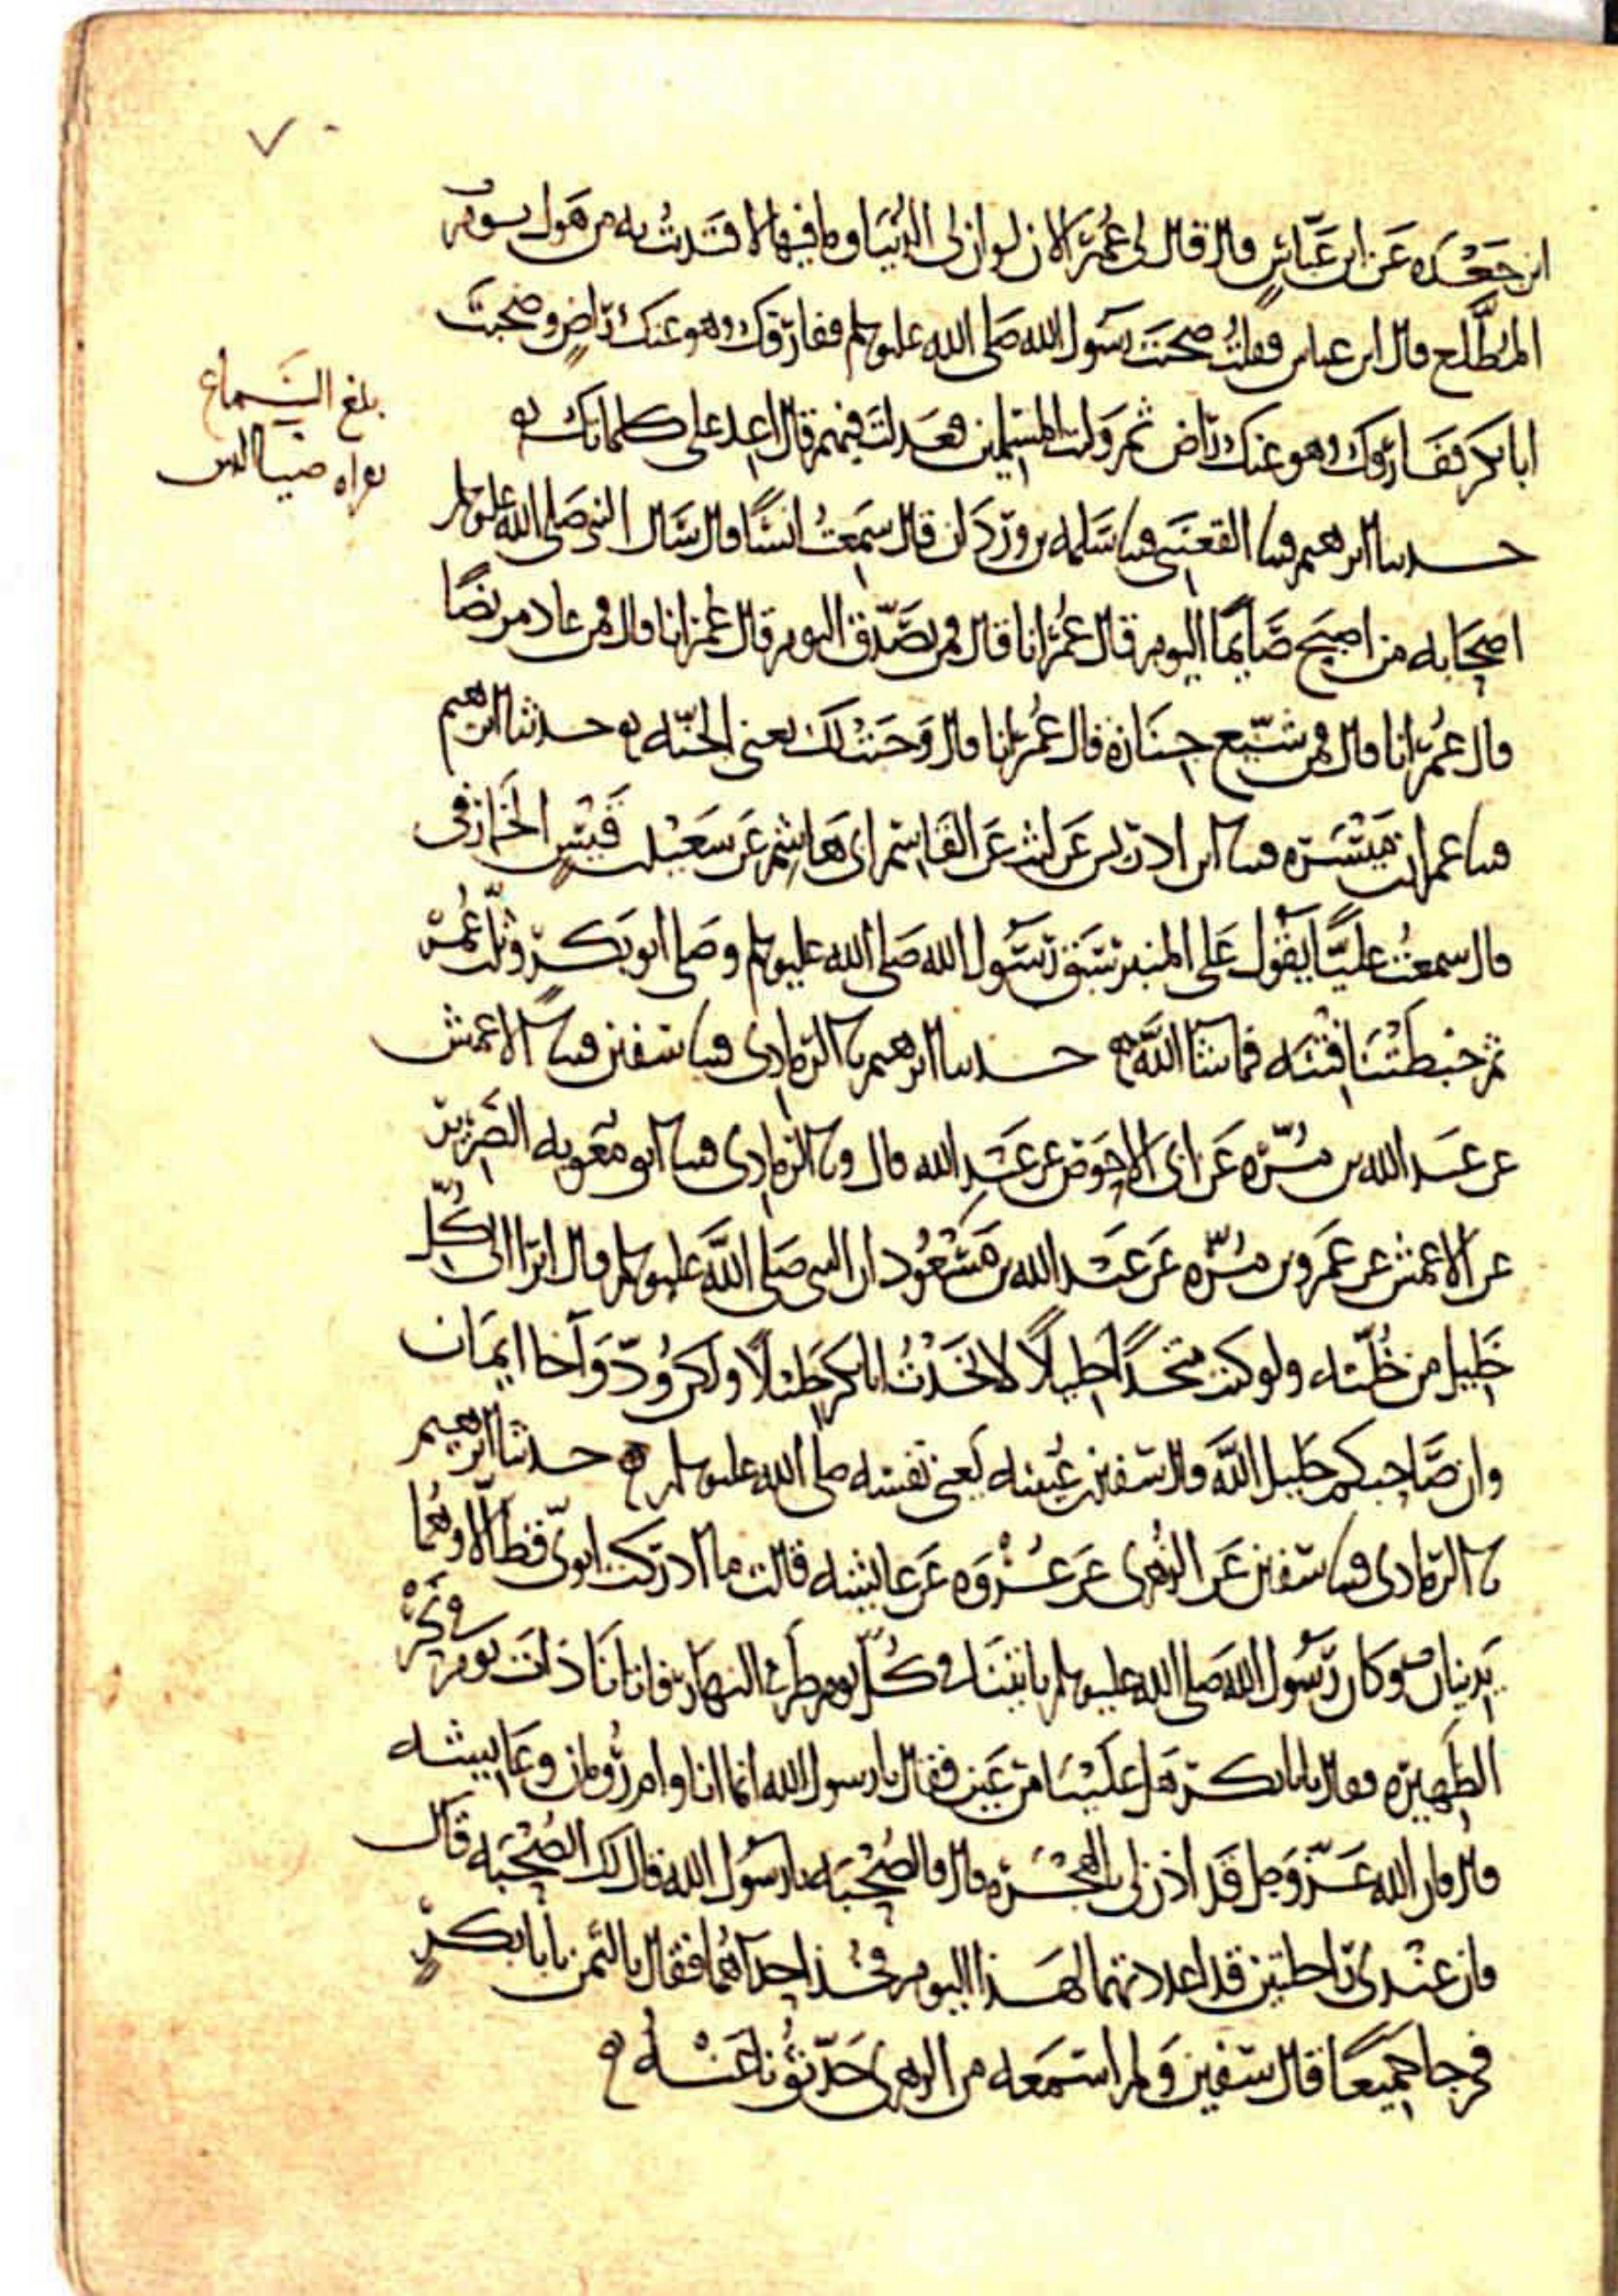 ٧٠
ابن جعده عَن ابن عَبّاسٍ قال قال لي عُمَر الان لو ان لي الدُنيَا وما فيها لافتَدَيتُ به من هَول يوم
المُطَّلع قال ابن عباس فقلتُ صحبتَ رسَول الله صَلى الله عليه وسلم ففارقك وهو عنك راضٍ وصحبتَ
ابا بكر ففَارقك وهو عنك راض ثم وَليت المسلمين فعَدلتَ فيهم قال اعِد على كلماتك
حدثنا ابرهيم قثنا القعنَبي قثنا سَلمه بن وَردَان قال سَمِعتُ انسًا قال سَال النبي صَلى الله عليه وسلم
اصحَابه من اصبَح صَايمًا اليوم قال عُمَر انا قال فمن تصَدّق اليوم قال عُمَر انا قال فمن عاد مريضًا
قال عُمَر انا قال فمن شيّع جنَازه قال عُمَر انا قال وَجَبَتْ لكَ يعني الجنّه حدثنا ابرهيم
قثنا عمران بن مَيْسَره قثنا ابن ادريس عَن ليث عَن القَاسم ابي هَاشم عَن سَعيد بن قَيسٍ الخَارفي
قال سمعتُ عليًّا يقول عَلى المنبر سَبَق رسَول الله صَلى الله عليه وسلم وصَلى ابو بَكر وثلّث عُمَر
ثم خبَطَتْنَا فتْنَه فما شا اللَّه حدثنا ابرهيم نا الرَمادي قثنا سفين قثنا الاعمش
عن عَبد الله بن مُرّه عَن ابي الاحوَص عن عَبدِ الله قال ونا الرمادي قثنا ابو معَويه الضَرير
عن الاعمش عن عَمرو بن مُرّه عَن عَبْد الله بن مَسْعُود ان النبي صَلى اللَّه عليه وسلم قال ابرا الى كُلّ
خَليل من خُلّته ولو كنت متخذًا خليلًا لاتخَذْتُ ابا بكر خَليلًا ولكن وُدّ وَاخا ايمَان
وان صَاحبكم خليل اللَّه قال سفين بن عُيينه يَعني نفسَه صلى الله عليه وسلم حدثنا ابرهيم
نا الرمادي قثنا سفين عَن الزُهري عَن عُرْوَه عَن عايشه قالت ما ادركت ابويّ قط الّا وهُما
يَدينان وكان رسَول الله صلى الله عليه وسلم ياتينَا في كُلّ يوم طَرفي النهار فاتانَا ذاتَ يَوم في نحر
الظَهيره فقال يابا بكر هَل عليْنا من عَين فقال يا رسول الله انما انا وام رُومان وعَايشه
قال فان الله عَزّ وَجل قَد اذن لي بالهِجْرَه قال فالصُحْبَه يا رسَول الله قال لك الصُحْبَه قال
فان عنْدي رَاحلتين قد اعددتهما لهَذا اليوم فخُذ احِدَاهُما فقال بالثمن يابا بكرٍ
فخرجا جَميعًا قال سفين وَلم اسمَعه من الزهري حَدّثُونَا عَنْهُ
بلغ السَماع
بقراه ضيا الدين